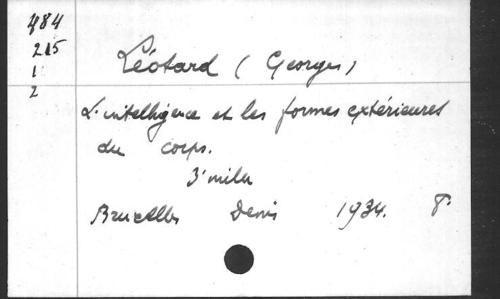 484
215
1
2
Léotard (Georges)
L'intelligence et les formes extérieures
du corps.
3e mille
Bruxelles Denis 1934. 8°